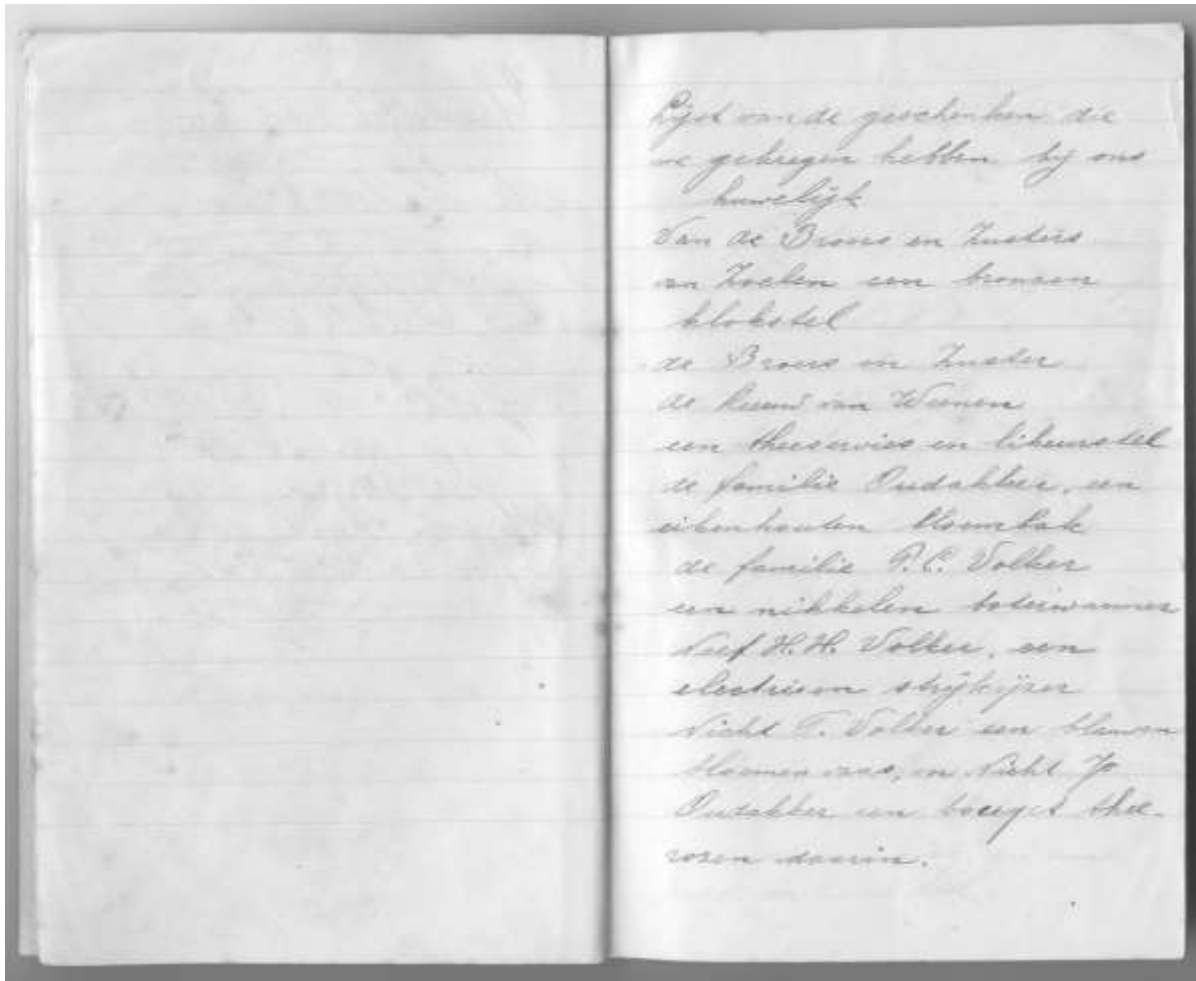 Lijst van de geschenken die
we gekregen hebben bij ons
huwelijk
Van de Broers en Zusters
van Zoelen een bronzen
klokstel
de Broers en Zuster
de van Weenen
een theeservies en likeurstel
de familie Oudakker, een
eikenhouten bloembak
de familie P.C. Volker
een nikkelen boterwarmer
Neef H.H. Volker, een
electrisen strijkijzer
Nicht T. Volker een blauwen
bloemen vaas, en Nicht Jo
Oudakker een bocuyet thee-
rozen daarin.